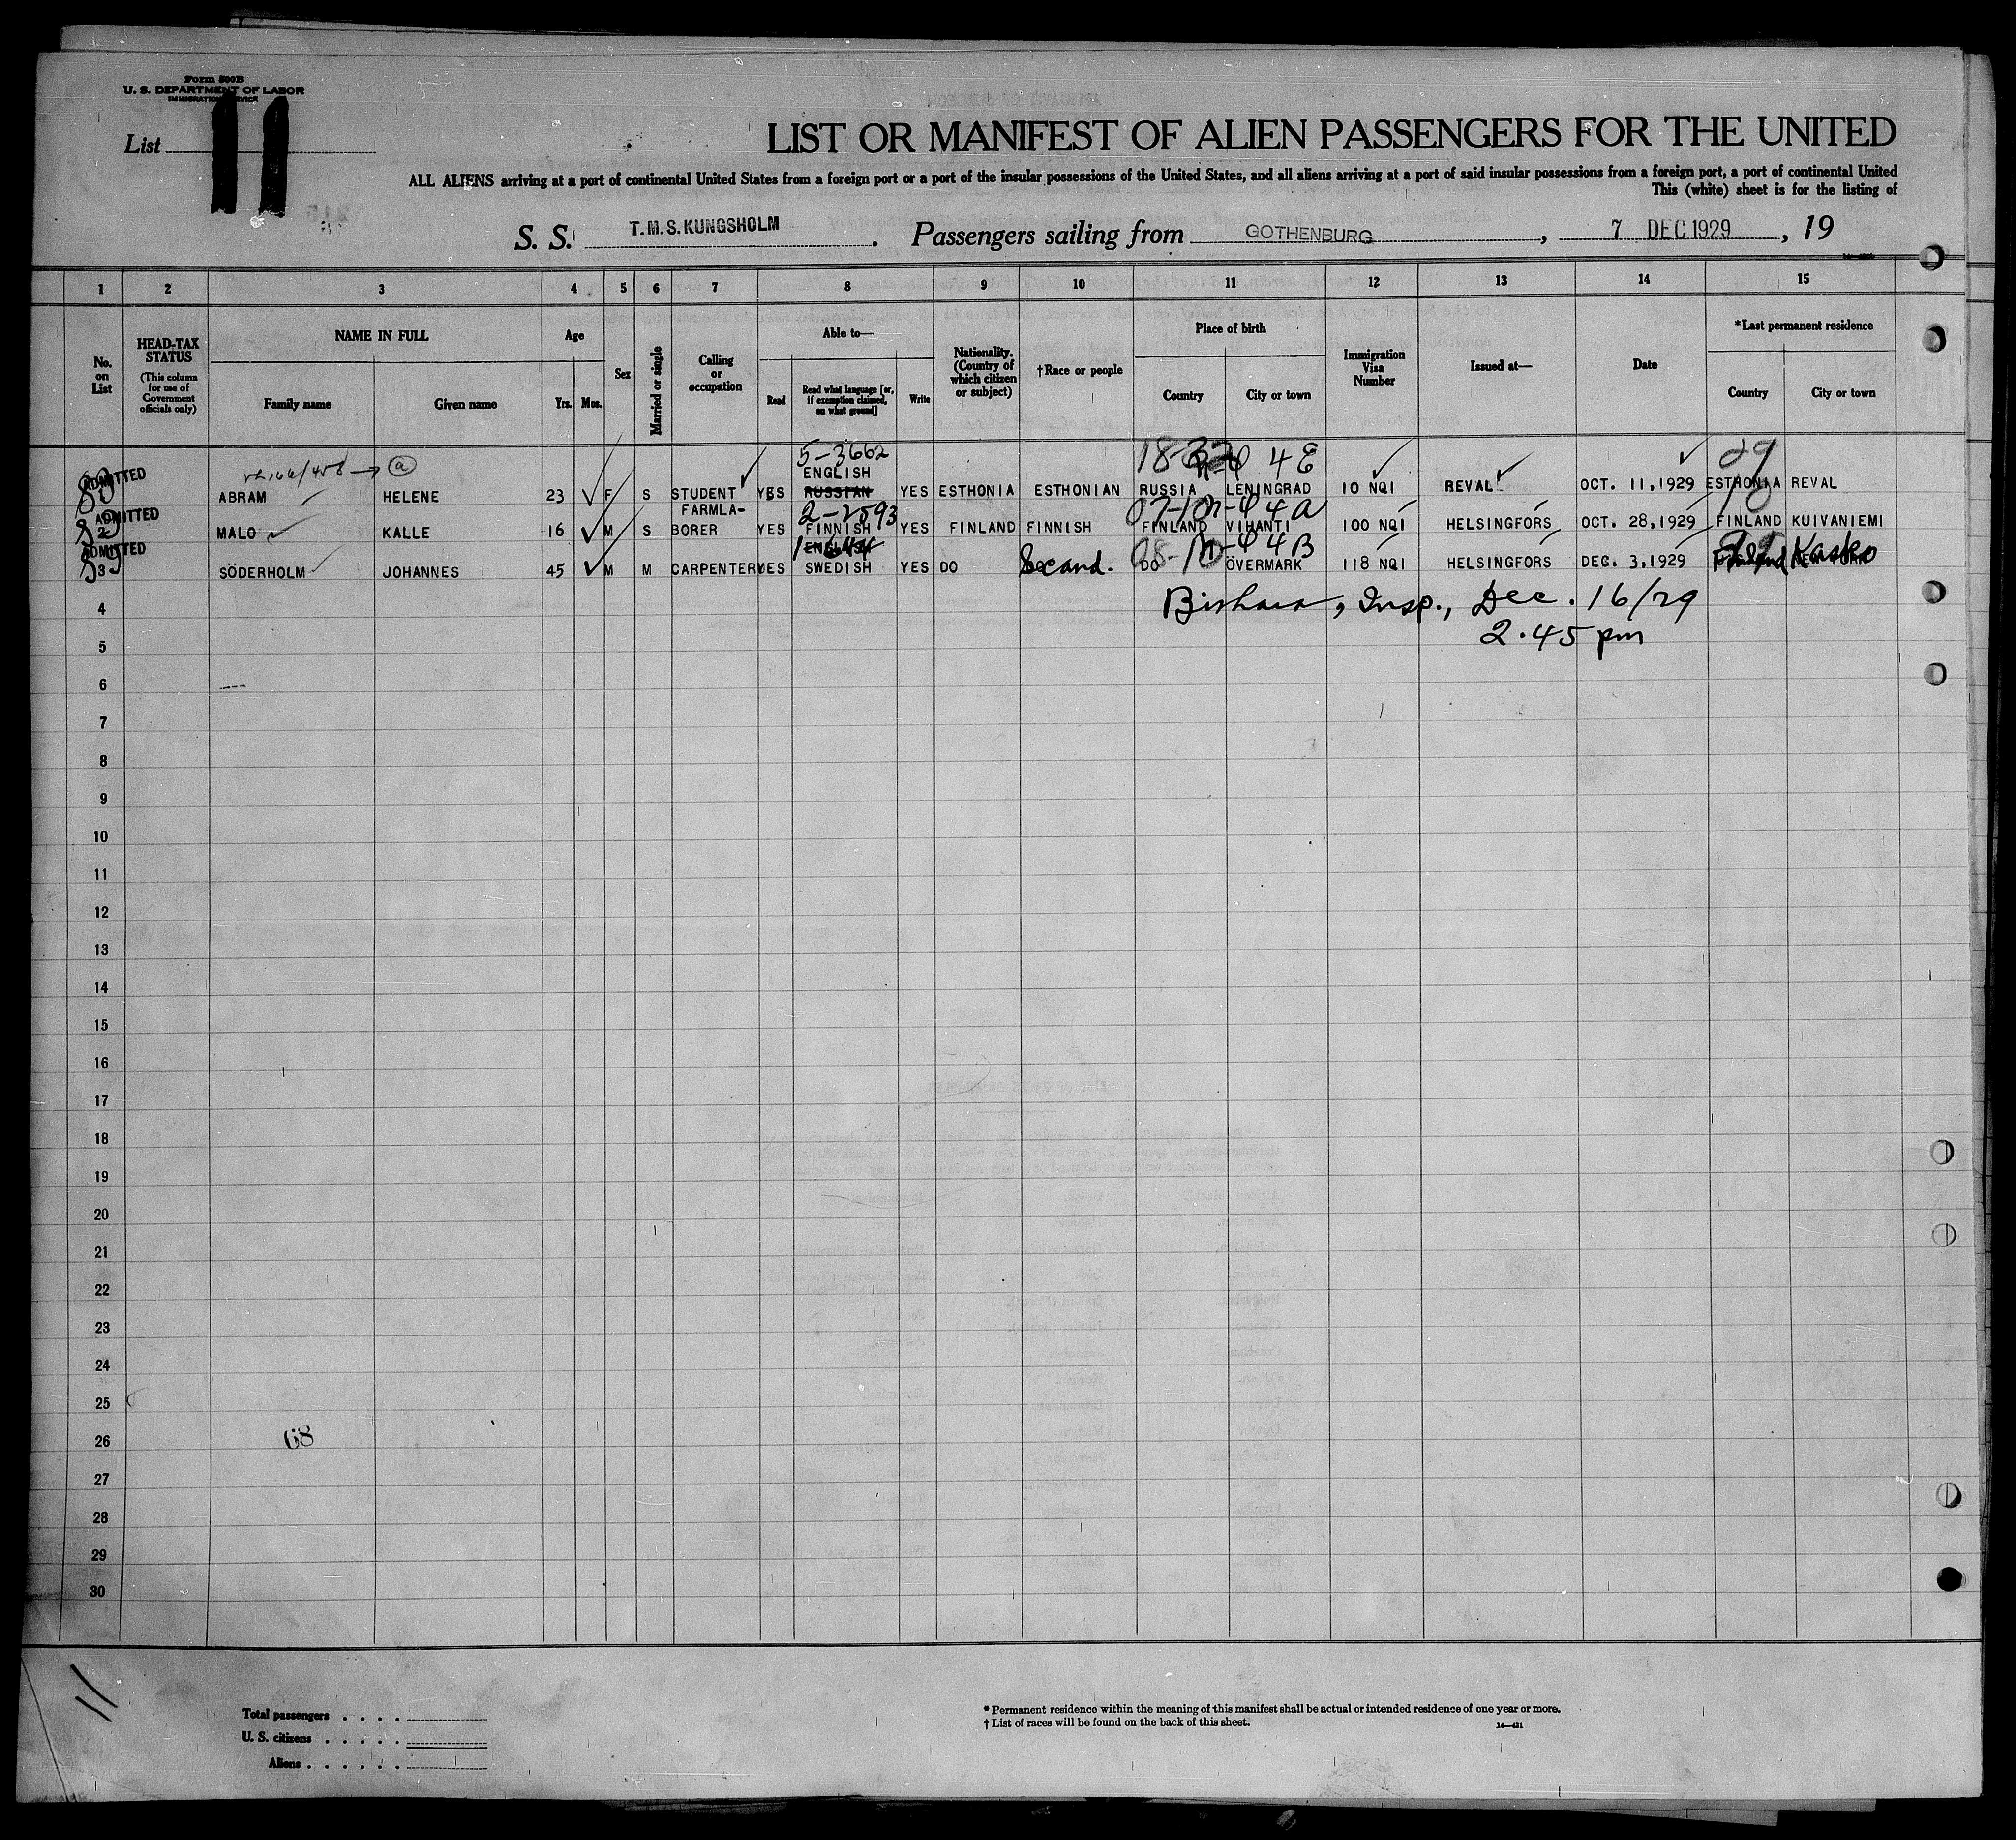 Form 500B
U. S. DEPARTMENT OF LABOR
IMMIGRATION SERVICE
List 11
LIST OR MANIFEST OF ALIEN PASSENGERS FOR THE UNITED
ALL ALIENS arriving at a port of continental United States from a foreign port or a port of the insular possessions of the United States, and all aliens arriving at a port of said insular possessions from a foreign port, a port of continental United
This (white) sheet is for the listing of
S. S. T.M.S. KUNGSHOLM . Passengers sailing from GOTHENBURG , 7 DEC 1929 , 19
1 2 3 4 5 6 7 8 9 10 11 12 13 14 15
No. on List
HEAD-TAX STATUS (This column for use of Government officials only)
NAME IN FULL
Family name Given name
Age
Yrs. Mos.
Sex
Married or single
Calling or occupation
Able to—
Read Read what language [or, if exemption claimed, on what ground] Write
Nationality. (Country of which citizen or subject)
†Race or people
Place of birth
Country City or town
Immigration Visa Number
Issued at—
Date
*Last permanent residence
Country City or town
5-3662
ENGLISH
ADMITTED ABRAM HELENE 23 F S STUDENT YES RUSSIAN YES ESTHONIA ESTHONIAN RUSSIA LENINGRAD 10 NQI REVAL OCT. 11,1929 ESTHONIA REVAL
FARMLA- 2-2593
ADMITTED 2 MALO KALLE 16 M S BORER YES FINNISH YES FINLAND FINNISH FINLAND VIHANTI 100 NQI HELSINGFORS OCT. 28,1929 FINLAND KUIVANIEMI
ENGLISH
ADMITTED 3 SÖDERHOLM JOHANNES 45 M M CARPENTER YES SWEDISH YES DO Scand. DO ÖVERMARK 118 NQI HELSINGFORS DEC. 3,1929 Finland Kasko
4 Bishara, Insp., Dec. 16/29
5 2.45 pm
6
7
8
9
10
11
12
13
14
15
16
17
18
19
20
21
22
23
24
25
26 68
27
28
29
30
11
Total passengers
U. S. citizens
Aliens
* Permanent residence within the meaning of this manifest shall be actual or intended residence of one year or more.
† List of races will be found on the back of this sheet.
14—431